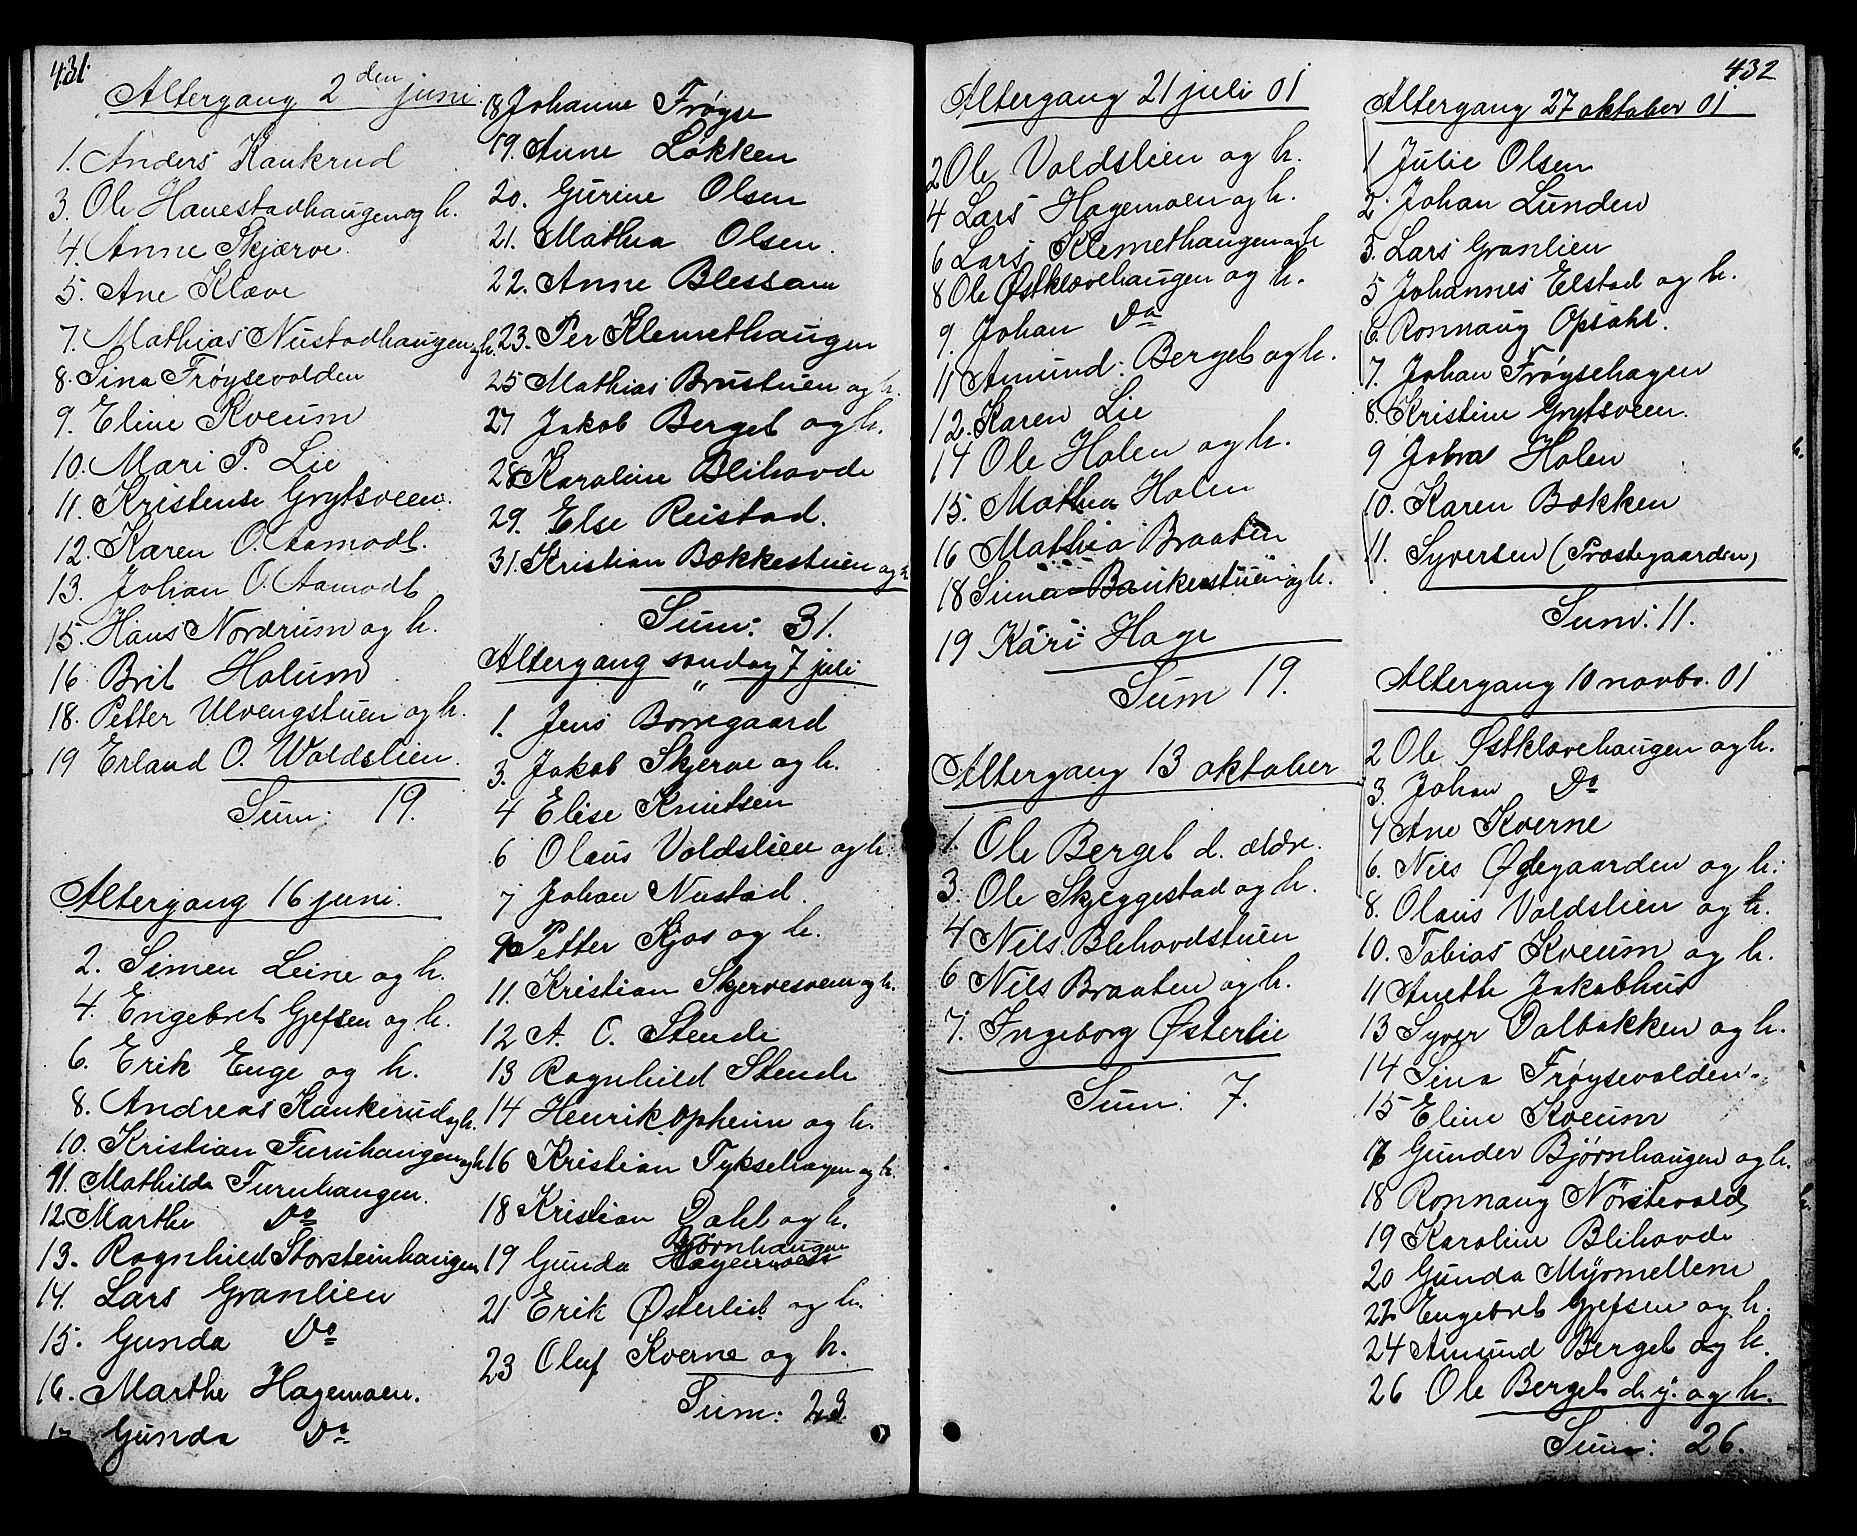 431.
Altergang 2den juni.
1. Anders Kankrud
3. Ole Hanestadhaugen og h.
4. Anne Skjærve
5. Ane Klæve
7. Mathias Nustadhaugen og h.
8. Sina Frøysevolden
9. Eline Kveum
10. Mari P. Lie
11. Kristense Grytsveen.
12. Karen O. Aamodt.
13. Johan O. Aamodt
15. Hans Nordrum og h.
16 Brit Holum
18. Petter Ulvengstuen og h.
19 Erland O. Woldslien.
Sum: 19.
Altergang 16 juni.
2. Simen Leine og h.
4. Engebret Gjefsen og h.
6. Erik Enge og h.
8. Andreas Kankerud og h.
10. Kristian Furuhaugen og h
11. Mathilde Furuhaugen.
12. Marthe Do
13. Ragnhild Storsteinhaugen
14. Lars Granlien
15. Gunda Do
16. Marthe Hagemoen.
17 Gunda Do
18 Johanne Frøyse
19. Anne Løkken
20. Gurine Olsen
21. Mathea Olsen.
22. Anne Blessom
23. Per Klemethaugen
25 Mathias Brustuen og h.
27 Jakob Berget og h.
28 Karoline Blihovde
29. Else Reistad.
31. Kristian Bækkestuen og h
Sum: 31.
Altergang søndag 7 juli
1. Jens Borregaard
3. Jakob Skjerve og h.
4 Elise Knutsen
6 Olaus Voldslien og h.
7 Johan Nustad.
9 Petter Kjos og h.
11. Kristian Skjervesveen og h.
12 A. O. Stende
13 Ragnhild Stende
14 Henrik Opheim og h.
16 Kristian Tyksehagen og h.
18 Kristian Dahl og h.
Bjørnhaugen
19 Gunda Hagemoen
21 Erik Østerlie og h.
23 Oluf Kverne og h.
Sum: 23.
432
Altergang 21 juli 01
2 Ole Voldslien og h.
4 Lars Hagemoen og h.
6 Lars Klemethaugen og h
8 Ole Østklævehaugen og h.
9. Johan Do
11 Amund Berget og h.
12. Karen Lie
14 Ole Holen og h.
15. Mathea Holen
16 Mathea Braaten
18 Simen Baukestuen og h.
19 Kari Hage
Sum 19.
Altergang 13 oktober
1. Ole Berget d. ældre.
3. Ole Skjeggestad og h.
4 Nils Blihovdstuen
6 Nils Braaten og h.
7. Ingeborg Østerlie
Sum: 7.
Altergang 27 oktober 01
1 Julie Olsen
2. Johan Lunden
3. Lars Granlien
5 Johannes Elstad og h.
6. Ronnaug Opsahl.
7. Johan Frøysehagen
8. Kristine Grytsveen.
9 Johan Holen
10. Karen Bækken
11. Syversen (Præstegaarden)
Sum: 11.
Altergang 10 novbr. 01
2 Ole Østklævehaugen og h.
3. Johan Do
4 Ane Kverne
6. Nils Ødegaarden og h.
8. Olaus Voldslien og h.
10. Tobias Kveum og h.
11 Anette Jakobhus
13 Syver Dalbakken og h.
14 Sina Frøysevolden.
15 Eline Kveum
17 Gunder Bjørnhaugen og h.
18 Ronnaug Nørstevold
19 Karoline Blihovde
20 Gunda Myomellem
22. Engebret Gjefsen og h.
24 Amund Berget og h.
26 Ole Berget d. y. og h.
Sum: 26.